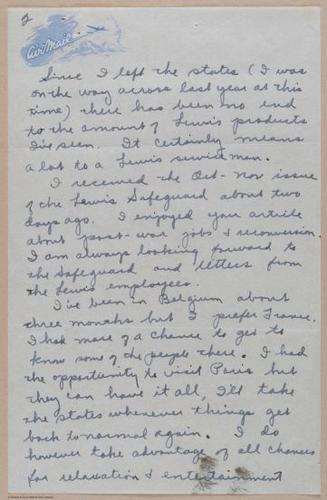 2
Air Mail
Since I left the states (I was
on the way across last year at this
time) there has been no end
to the amount of Lewis products
I've seen. It certainly means
a lot to a Lewis service man.
I received the Oct - Nov issue
of the Lewis Safeguard about two
days ago. I enjoyed your article
about post-war jobs & reconversion.
I am always looking forward to
the Safeguard and letters from
the Lewis employees.
I've been in Belgium about
three months but I prefer France.
I had more of a chance to get to
know some of the people there. I had
the opportunity to visit Paris but
they can have it all, I'll take
the States whenever things get
back to normal again. I do
however take advantage of all chances
for relaxation & entertainment